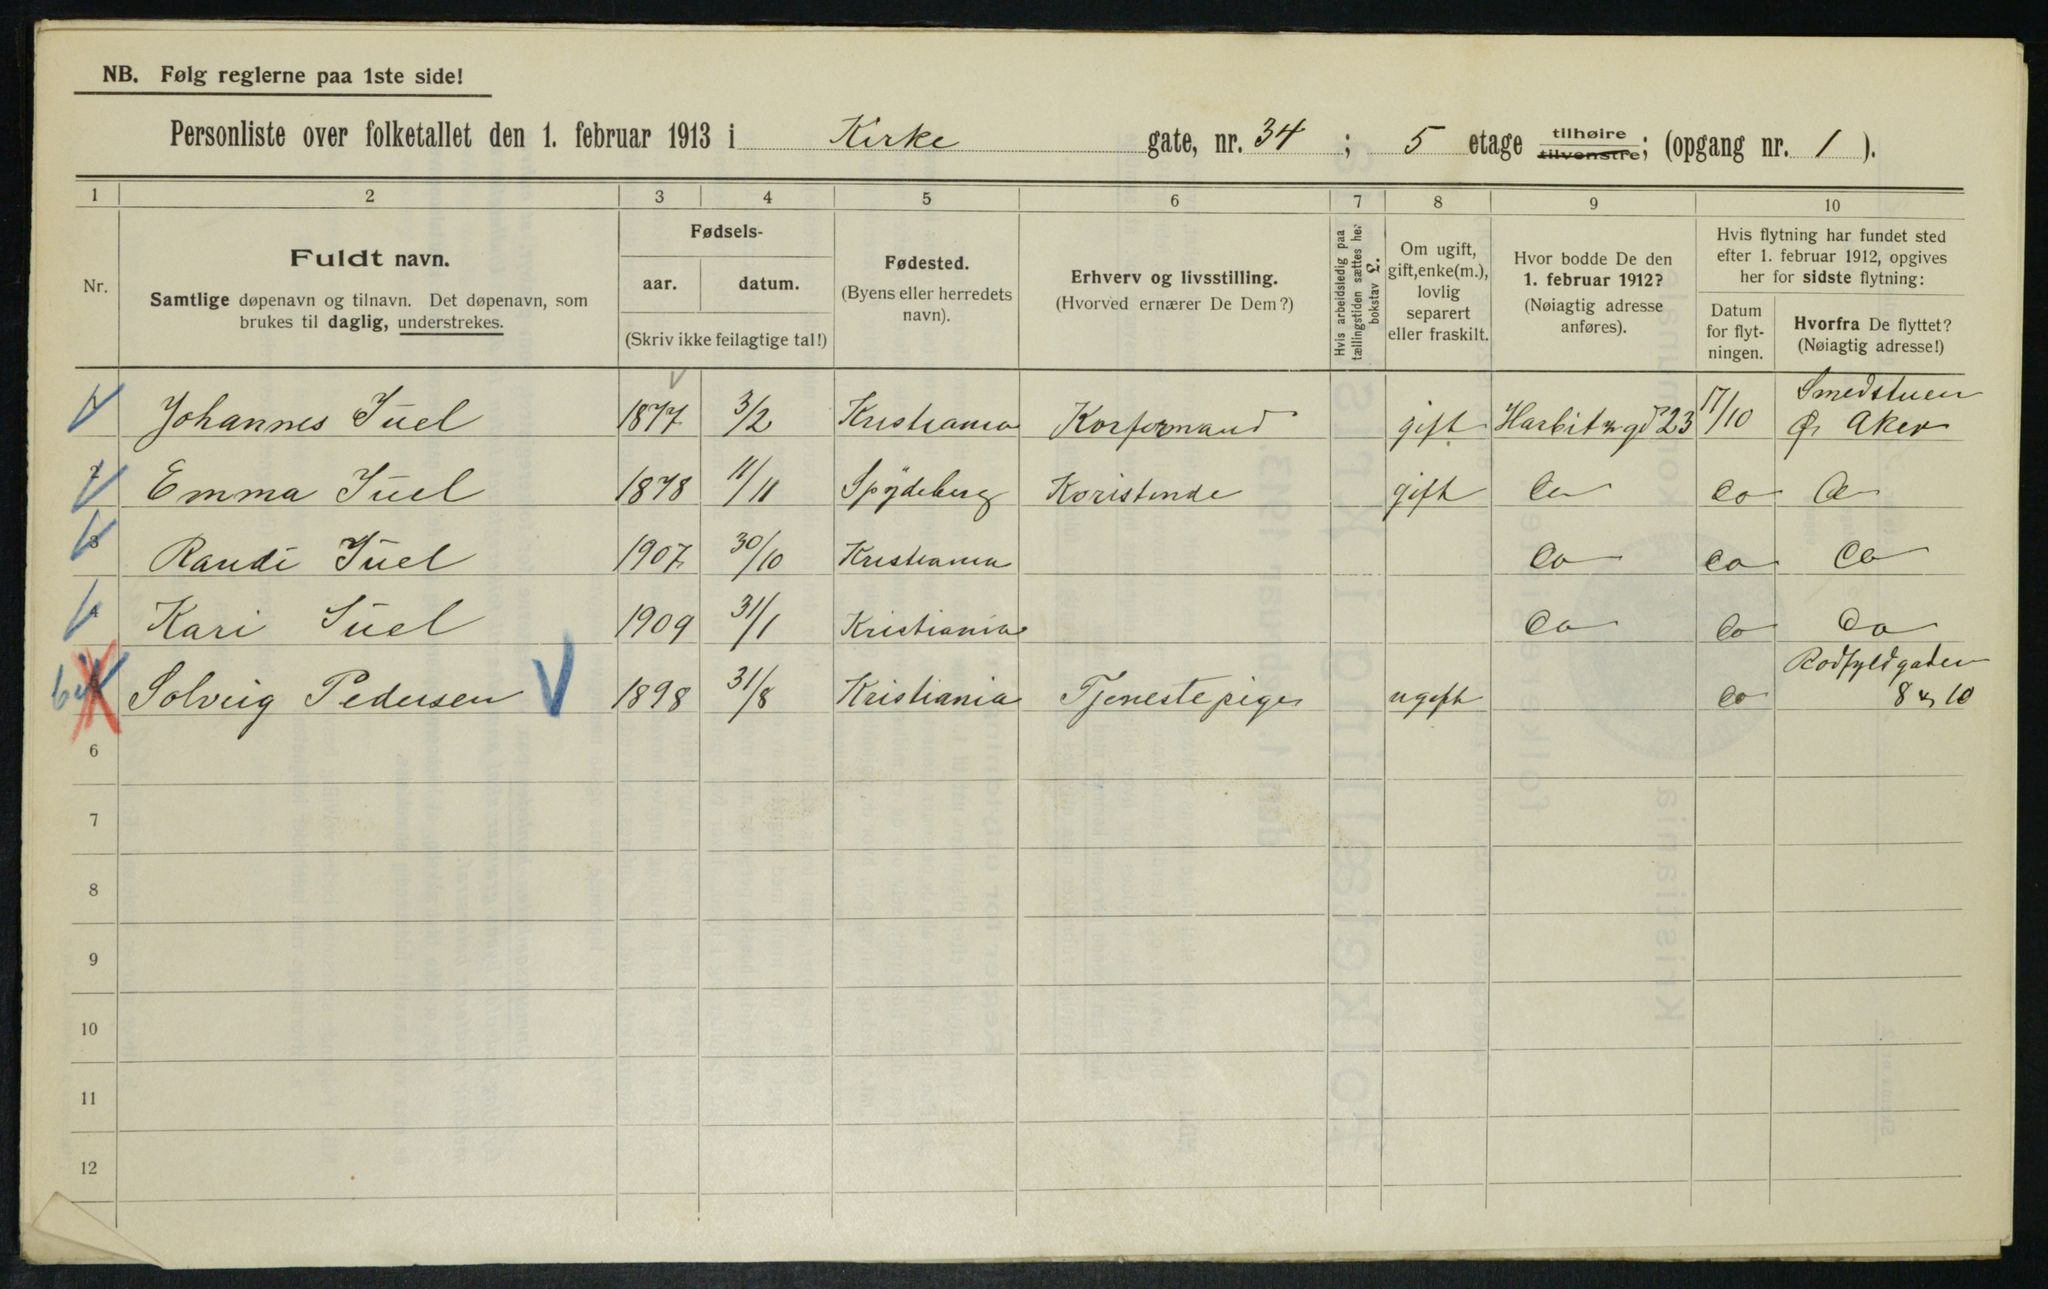 NB. Følg reglerne paa 1ste side!
Personliste over folketallet den 1. februar 1913 i Kirke gate, nr. 34 ; 5 etage tilhøire tilvenstre; (opgang nr. 1 ).
1 2 3 4 5 6 7 8 9 10
Nr.
Fuldt navn.
Samtlige døpenavn og tilnavn. Det døpenavn, som
brukes til daglig, understrekes.
Fødsels-
aar. datum.
(Skriv ikke feilagtige tal!)
Fødested.
(Byens eller herredets
navn).
Erhverv og livsstilling.
(Hvorved ernærer De Dem?)
Hvis arbeidsledig paa
tællingstiden sættes her
bokstav L.
Om ugift,
gift, enke(m.),
lovlig
separert
eller fraskilt.
Hvor bodde De den
1. februar 1912?
(Nøiagtig adresse
anføres).
Hvis flytning har fundet sted
efter 1. februar 1912, opgives
her for sidste flytning:
Datum
for flyt-
ningen.
Hvorfra De flyttet?
(Nøiagtig adresse!)
Smedstuen
1 Johannes Juel 1877 3/2 Kristiania Korformand gift Harbitzgd 23 17/10 Ø. Aker
2 Emma Juel 1878 11/11 Spydeberg Koristinde gift Do Do Do
3 Randi Juel 1907 30/10 Kristiania Do Do Do
4 Kari Juel 1909 31/1 Kristiania Do Do Do
Rodfyldgaden
Solveig Pedersen 1898 31/8 Kristiania Tjenestepige ugift Do 8 & 10
6
7
8
9
10
11
12